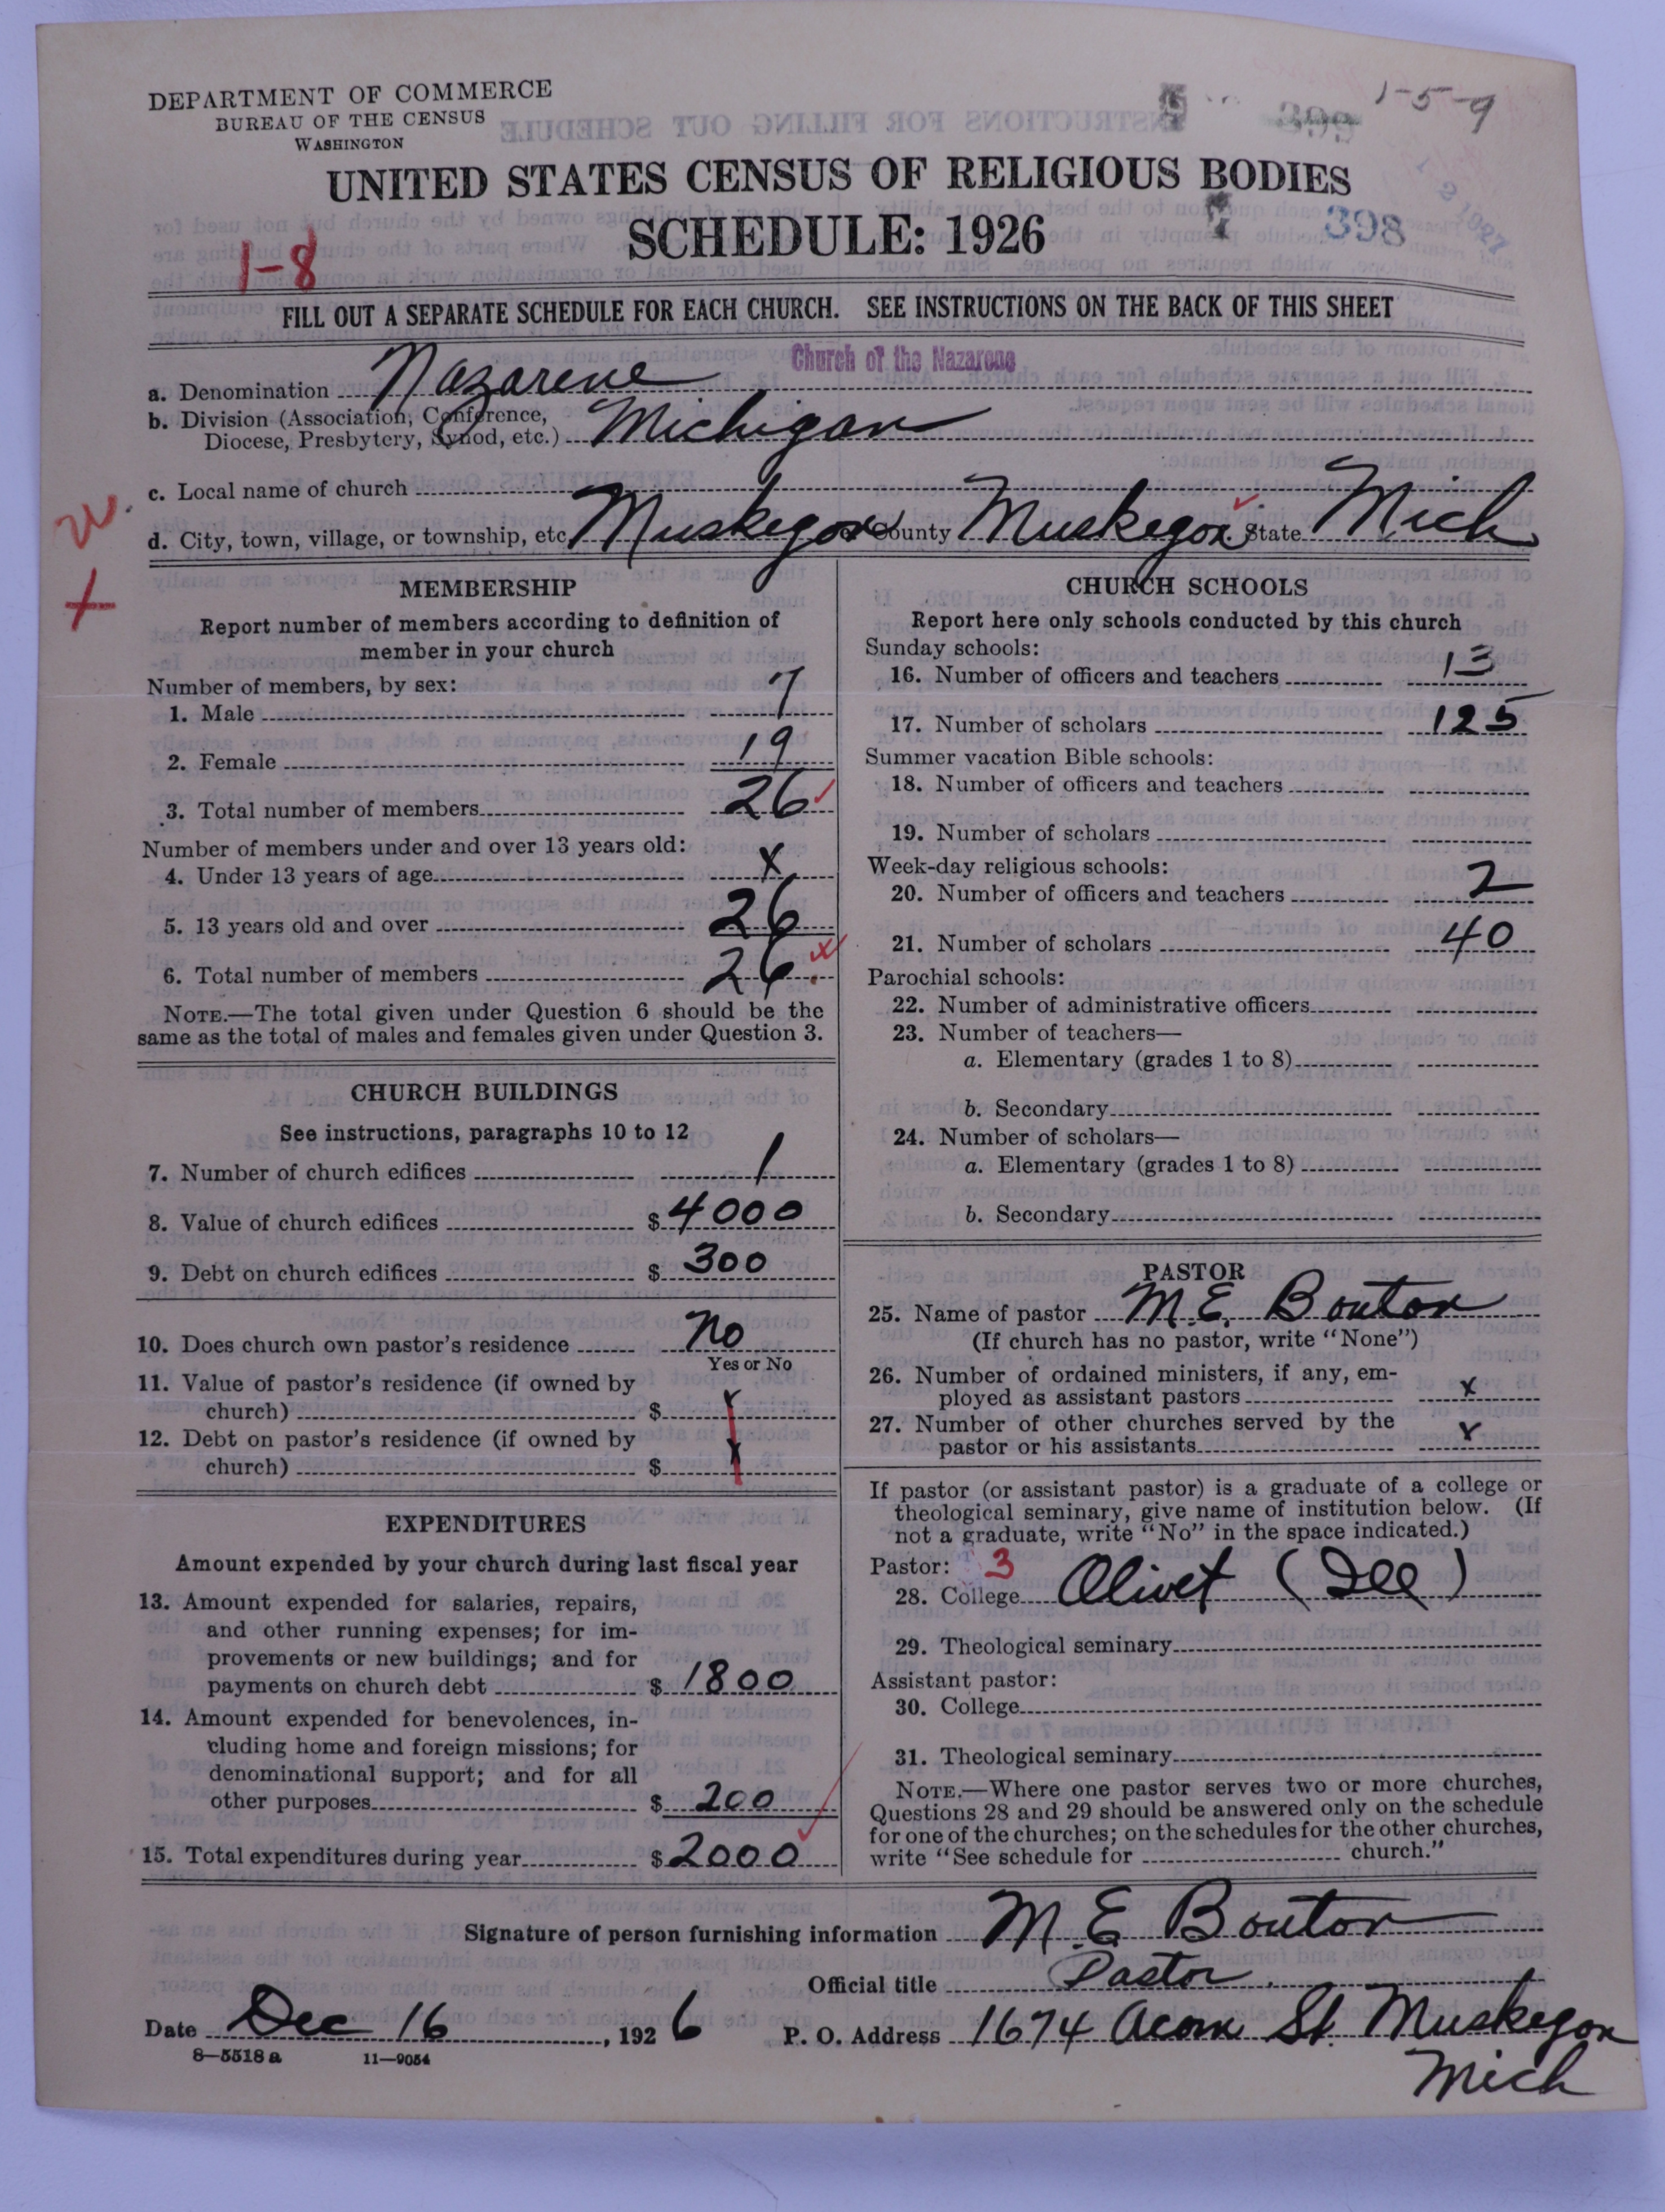 DEPARTMENT OF COMMERCE
BUREAU OF THE CENSUS
WASHINGTON
1-5-9
UNITED STATES CENSUS OF RELIGIOUS BODIES
SCHEDULE: 1926
7 398
1-8
FILL OUT A SEPARATE SCHEDULE FOR EACH CHURCH. SEE INSTRUCTIONS ON THE BACK OF THIS SHEET
Church of the Nazarene
a. Denomination Nazarene
b. Division (Association, Conference,
Diocese, Presbytery, Synod, etc.) Michigan
c. Local name of church
d. City, town, village, or township, etc. Muskegon County Muskegon State Mich
MEMBERSHIP
Report number of members according to definition of
member in your church
Number of members, by sex:
1. Male 7
2. Female 19
3. Total number of members 26
Number of members under and over 13 years old:
4. Under 13 years of age x
5. 13 years old and over 26
6. Total number of members 26
NOTE.—The total given under Question 6 should be the
same as the total of males and females given under Question 3.
CHURCH BUILDINGS
See instructions, paragraphs 10 to 12
7. Number of church edifices 1
8. Value of church edifices $ 4000
9. Debt on church edifices $ 300
10. Does church own pastor's residence No
Yes or No
11. Value of pastor's residence (if owned by
church) $ x
12. Debt on pastor's residence (if owned by
church) $ x
EXPENDITURES
Amount expended by your church during last fiscal year
13. Amount expended for salaries, repairs,
and other running expenses; for im-
provements or new buildings; and for
payments on church debt $ 1800
14. Amount expended for benevolences, in-
cluding home and foreign missions; for
denominational support; and for all
other purposes $ 200
15. Total expenditures during year $ 2000
CHURCH SCHOOLS
Report here only schools conducted by this church
Sunday schools:
16. Number of officers and teachers 13
17. Number of scholars 125
Summer vacation Bible schools:
18. Number of officers and teachers
19. Number of scholars
Week-day religious schools:
20. Number of officers and teachers 2
21. Number of scholars 40
Parochial schools:
22. Number of administrative officers
23. Number of teachers—
a. Elementary (grades 1 to 8)
b. Secondary
24. Number of scholars—
a. Elementary (grades 1 to 8)
b. Secondary
PASTOR
25. Name of pastor M. E. Bouton
(If church has no pastor, write "None")
26. Number of ordained ministers, if any, em-
ployed as assistant pastors x
27. Number of other churches served by the
pastor or his assistants x
If pastor (or assistant pastor) is a graduate of a college or
theological seminary, give name of institution below. (If
not a graduate, write "No" in the space indicated.)
Pastor: 3
28. College Olivet (Ill)
29. Theological seminary
Assistant pastor:
30. College
31. Theological seminary
NOTE.—Where one pastor serves two or more churches,
Questions 28 and 29 should be answered only on the schedule
for one of the churches; on the schedules for the other churches,
write "See schedule for church."
Signature of person furnishing information M E Bouton
Official title Pastor.
Date Dec 16, 1926 P. O. Address 1674 Acorn St. Muskegon
Mich
8—5518 a 11—9054